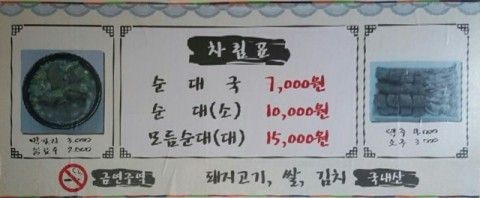 차림표
순 대 국 7,000원
순 대(소) 10,000원
모듬순대(대) 15,000원
막걸리 3,000
음료수 2,000
맥주 4,000
소주 3,000
금연구역
돼지고기, 쌀, 김치 국내산